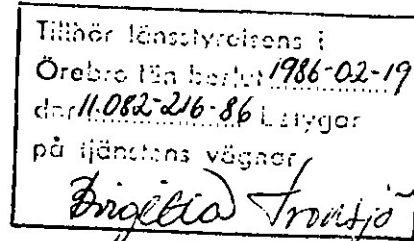 Tillhör länsstyrelsens i
Örebro län beslut 1986-02-19
dnr 11.082-216-86 betygar
på tjänstens vägnar
Birgitta Tronsjö